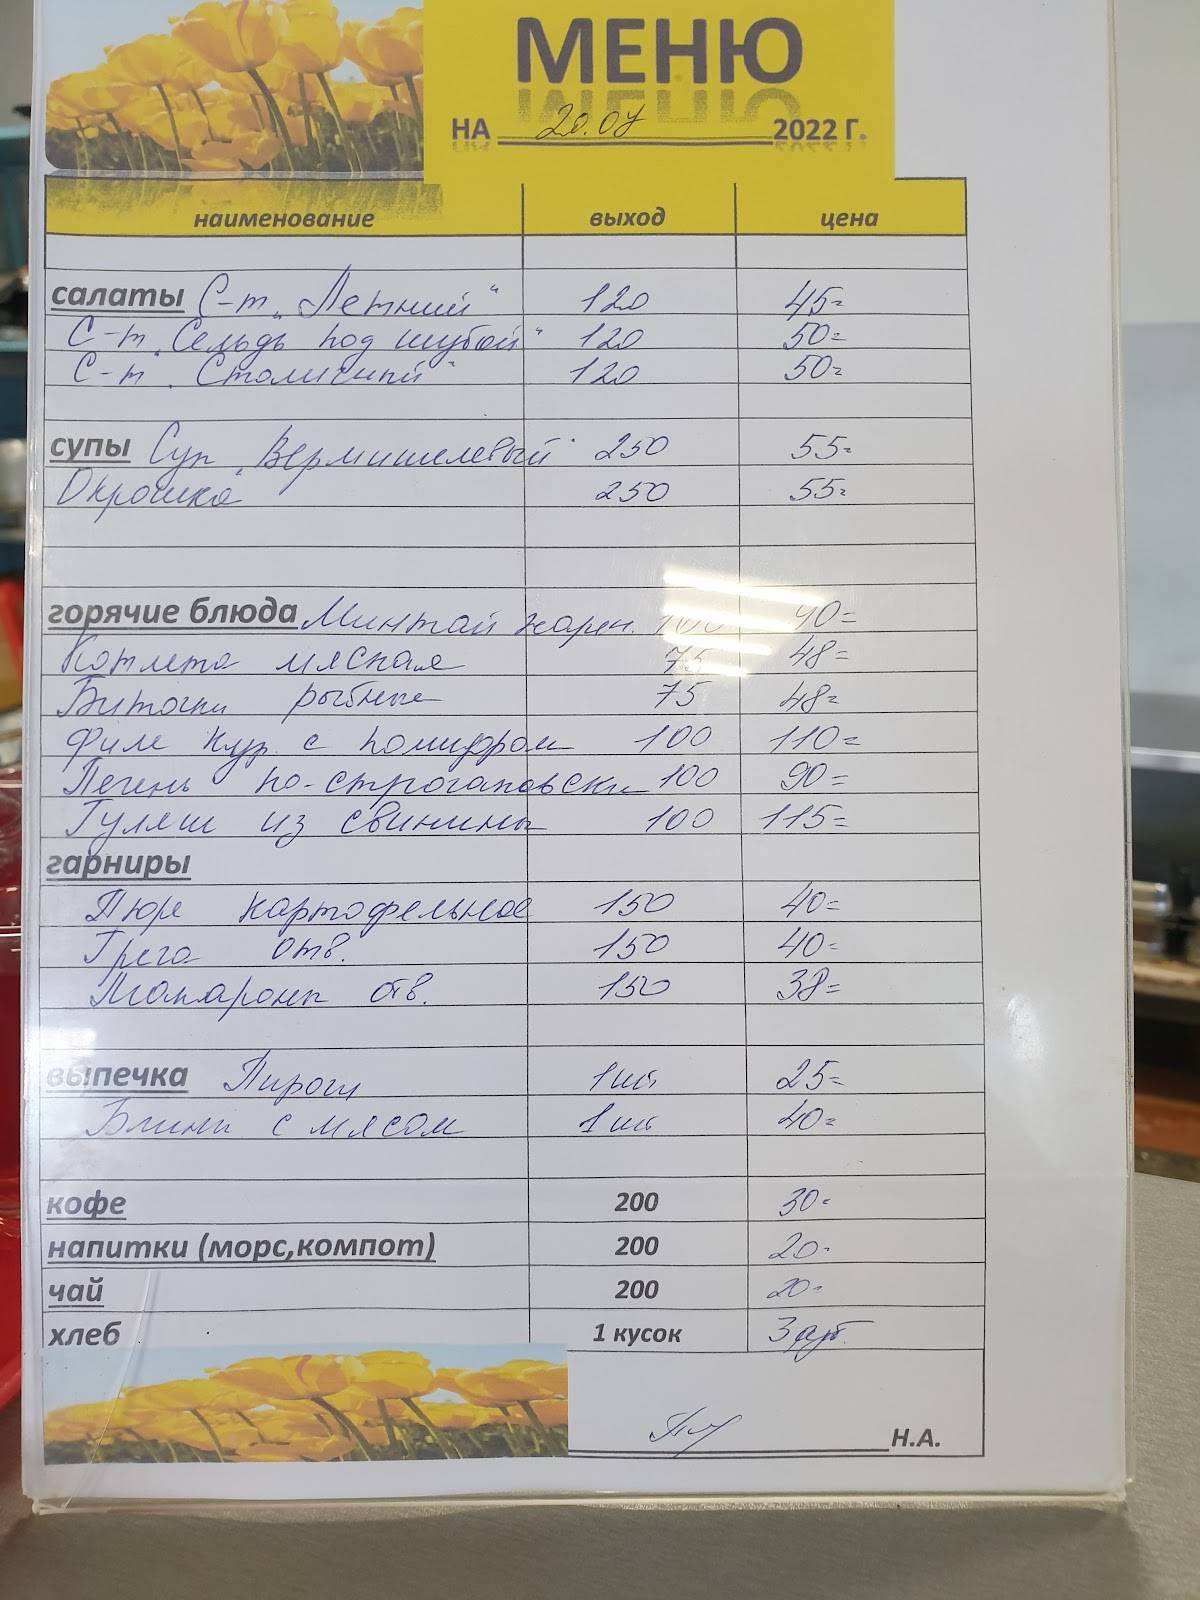 МЕНЮ
НА 20.07 2022 Г.
наименование выход цена
салаты С-т "Летний" 120 45=
С-т "Сельдь под шубой" 120 50=
С-т "Столичный" 120 50=
супы Суп "Вермишелевый" 250 55=
Окрошка 250 55=
горячие блюда Минтай жарен. 100 90=
Котлета мясная 75 48=
Биточки рыбные 75 48=
Филе кур. с помидром 100 110=
Печень по-строгановски 100 90=
Гуляш из свинины 100 115=
гарниры
Пюре картофельное 150 40=
Греча отв. 150 40=
Макароны отв. 150 38=
выпечка Пироги 1 шт 25=
Блины с мясом 1 шт 40=
кофе 200 30=
напитки (морс,компот) 200 20=
чай 200 20=
хлеб 1 кусок 3
Н.А.